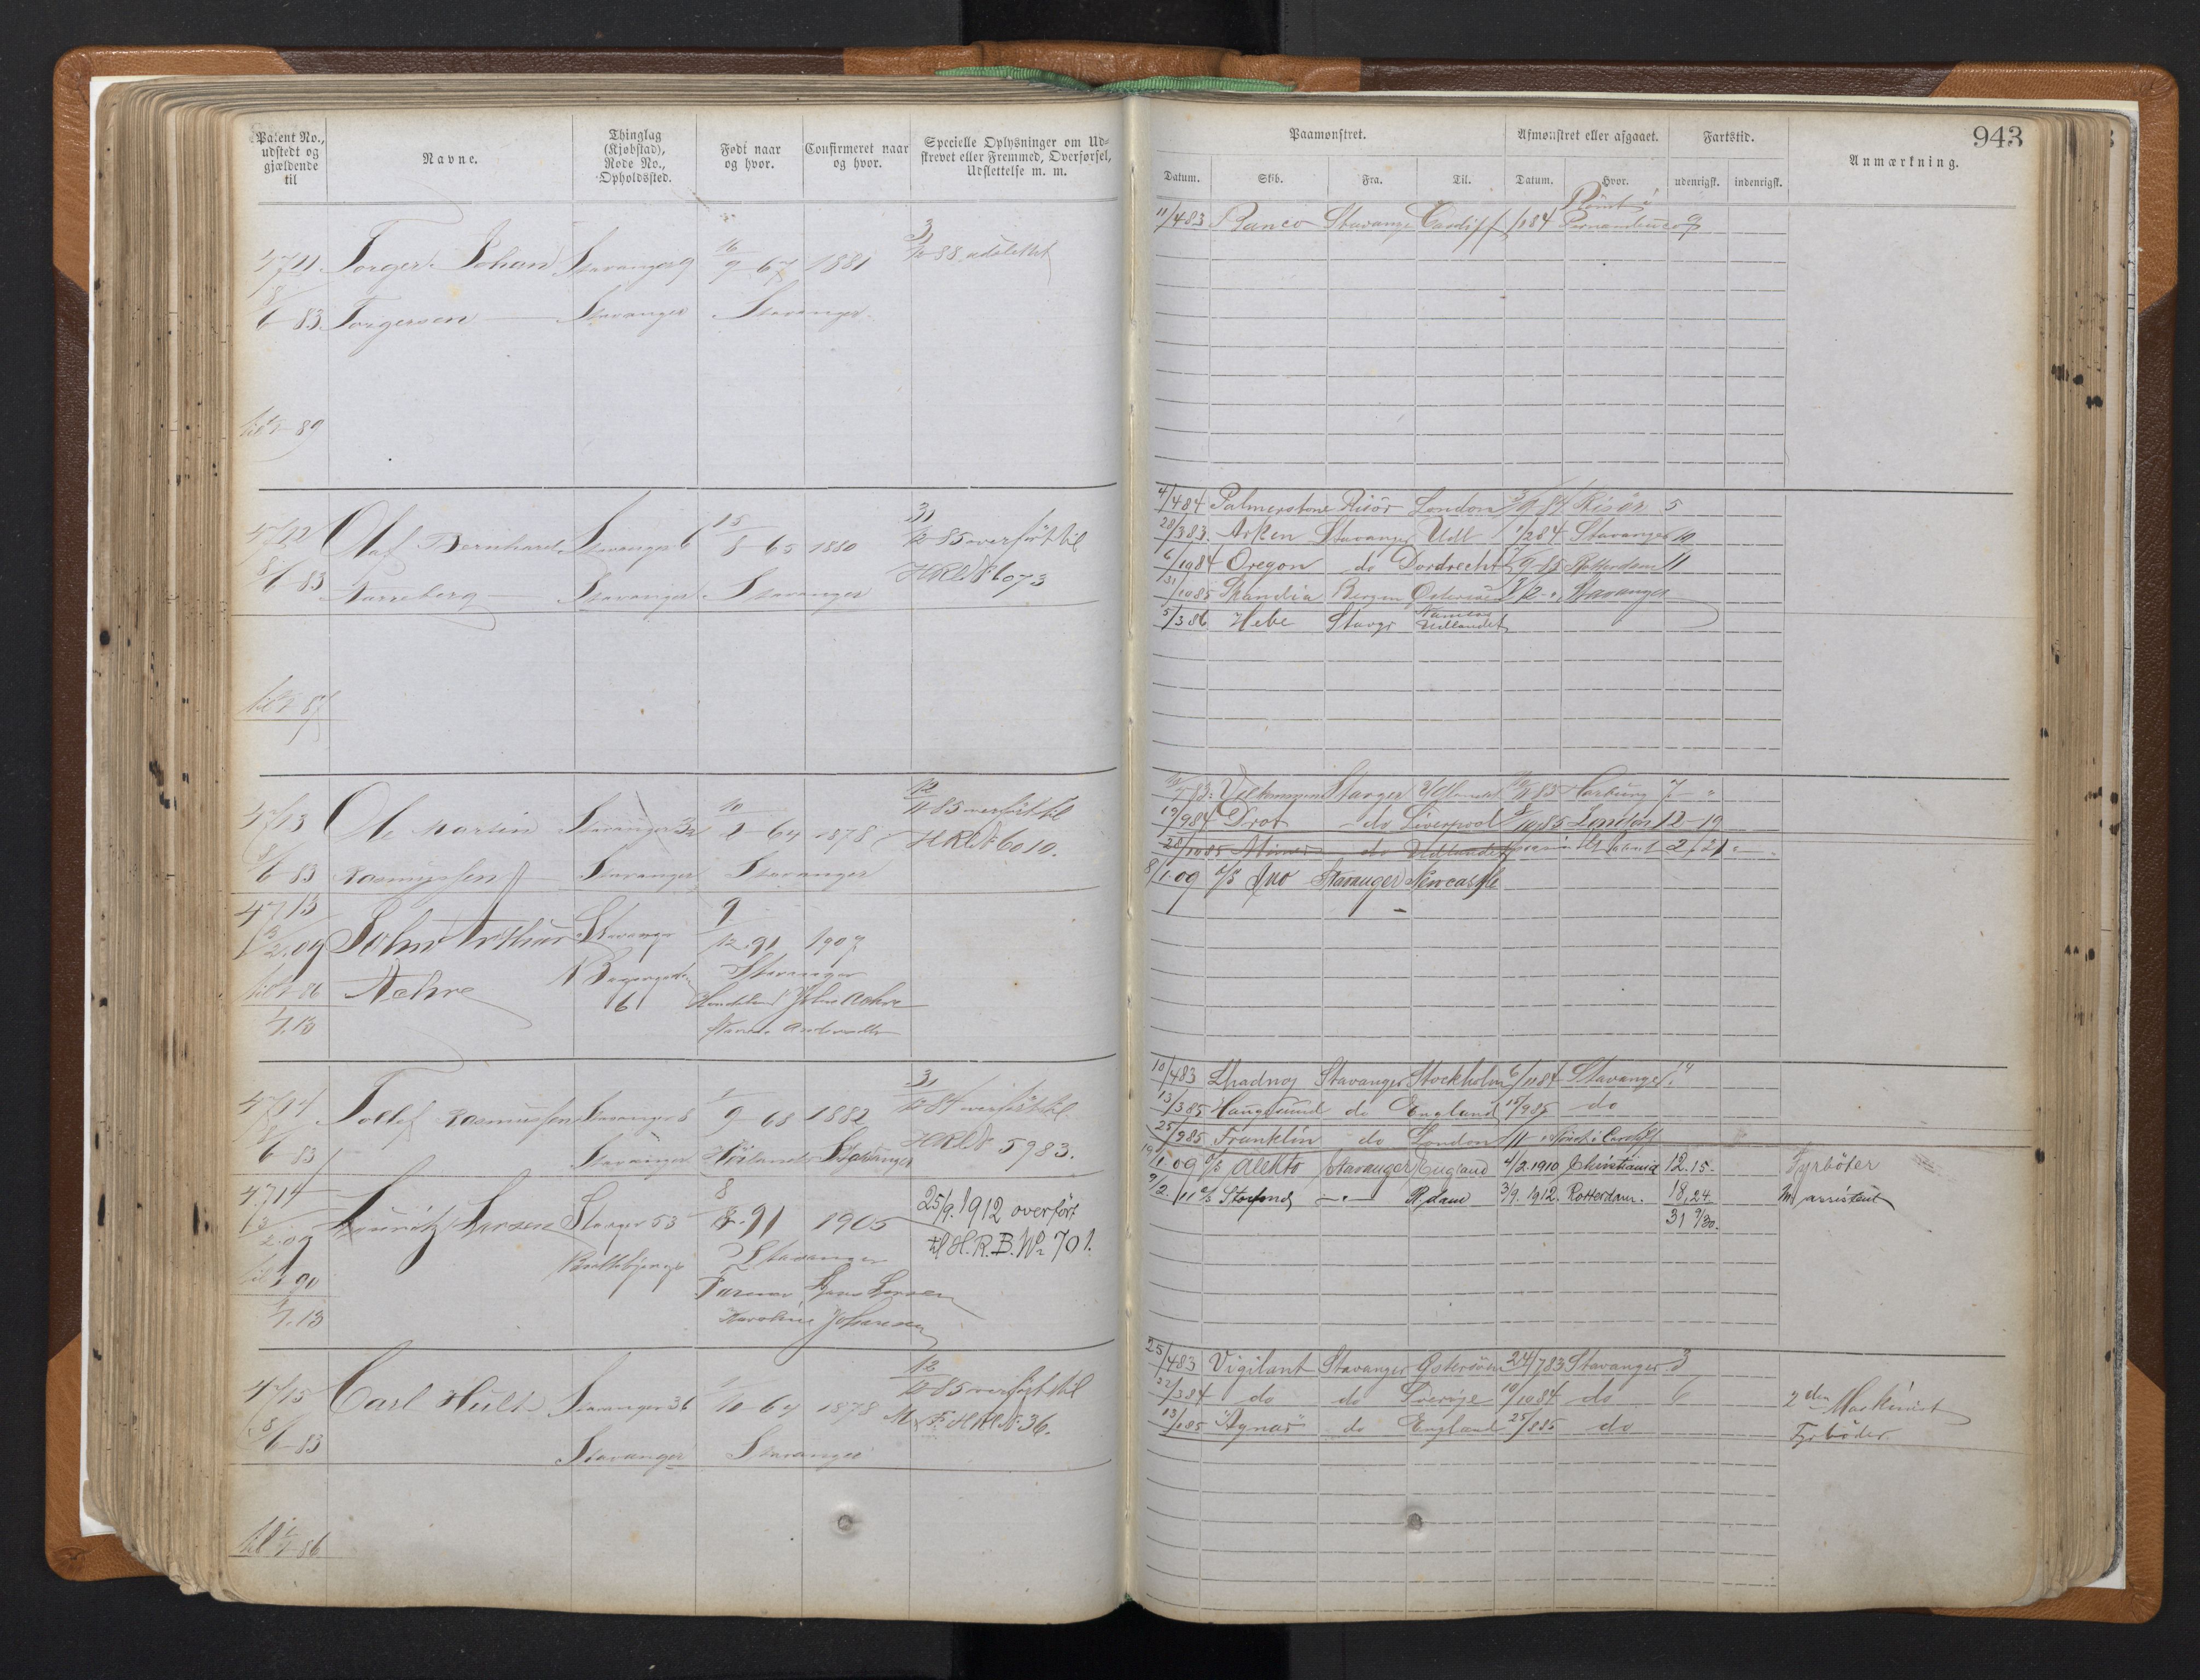 943
Patent No., udstedt og gjældende til
Navne.
Thinglag (Kjøbstad), Rode No., Opholdssted.
Født naar og hvor.
Confirmeret naar og hvor.
Specielle Oplysninger om Udskrevet eller Fremmed, Overførsel, Udslettelse m. m.
Paamønstret.
Afmønstret eller afgaaet.
Fartstid.
Anmærkning.
Datum. Skib. Fra. Til. Datum. Hvor. udenrigsk. indenrigsk.
4711 Torger Johan Stavanger 9 16/9-67 1881 31/12-88 udslettet
8/6-83 Torgersen Stavanger Stavanger
til 89
11/4 83 Stavanger Cardiff 84 Rømt i Pernambuco 9
4712 Olaf Bernhard Stavanger 6 15/8-65 1880 31/12-85 overført til
8/6-83 Stavanger Stavanger HRL No 6073
til 87
4/4 84 Palmerstone Risør London 84 Risør 5
28/3 83. Arken Stavanger Udl 1/2 84 Stavanger 10
6/10 84 Oregon do Dordrecht 85 Rotterdam 11
31/10 85 Skandia Bergen Østersøen Stavanger
5/3 86 Hebe Stavgr Udlandet
4713 Ole Martin Stavanger 32 64 1878 12/11-85 overført til
8/6 83 Rasmussen Stavanger Stavanger HRL No 6010.
4713
13/2.09 John Arthur Stavanger 9/12.91 1907
til 86 Aehre 16 Stavanger
John Aehre
1/7.13
83 Velkommen Stavger 83 Harburg 7
19/9 84 Drot do Liverpool 10 85 London 12-19
28/10 85 do Udlandet 2/21
8/1 09 Stavanger Newcastle
4714 Tollef Rasmussen Stavanger 8 9-68 1882 31/12-84 overført til
8/6 83 Stavanger Stavanger HRL No 5983.
4714 Lauritz Larsen Stavger 53 8/8-91 1905 25/9.1912 overført
13/2.09 Stavanger til H.R.B. No 701.
til 90 Larsen
1/7.13 Karoline Johansen
10/4 83 Stavanger Stockholm 6/11 84 Stavanger 14
13/3 85 Haugesund do England 15/9 85 do
25/9 85 Franklin do London Rømt i Cardiff
19/1 09 Alekto Stavanger England 4/2.1910 Christiania 12.15- Fyrbøter
9/2. 11 R.dam 3/9. 1912. Rotterdam. 18.24 M assistent
31 9/30.
4715 Carl Hult Stavanger 36 10-64 1878 12/12-85 overført til
8/6-83 Stavanger Stavanger M. F. HRL No 36.
til 1/7-86
25/4 83 Vigilant Stavanger Østersøen 24/7 83 Stavanger 3
22/3 84 do do Sverige 10/10 84 do 6 2den Maskinist
13/1 85 "Agnas" do England 25/8 85 do Fyrbøder